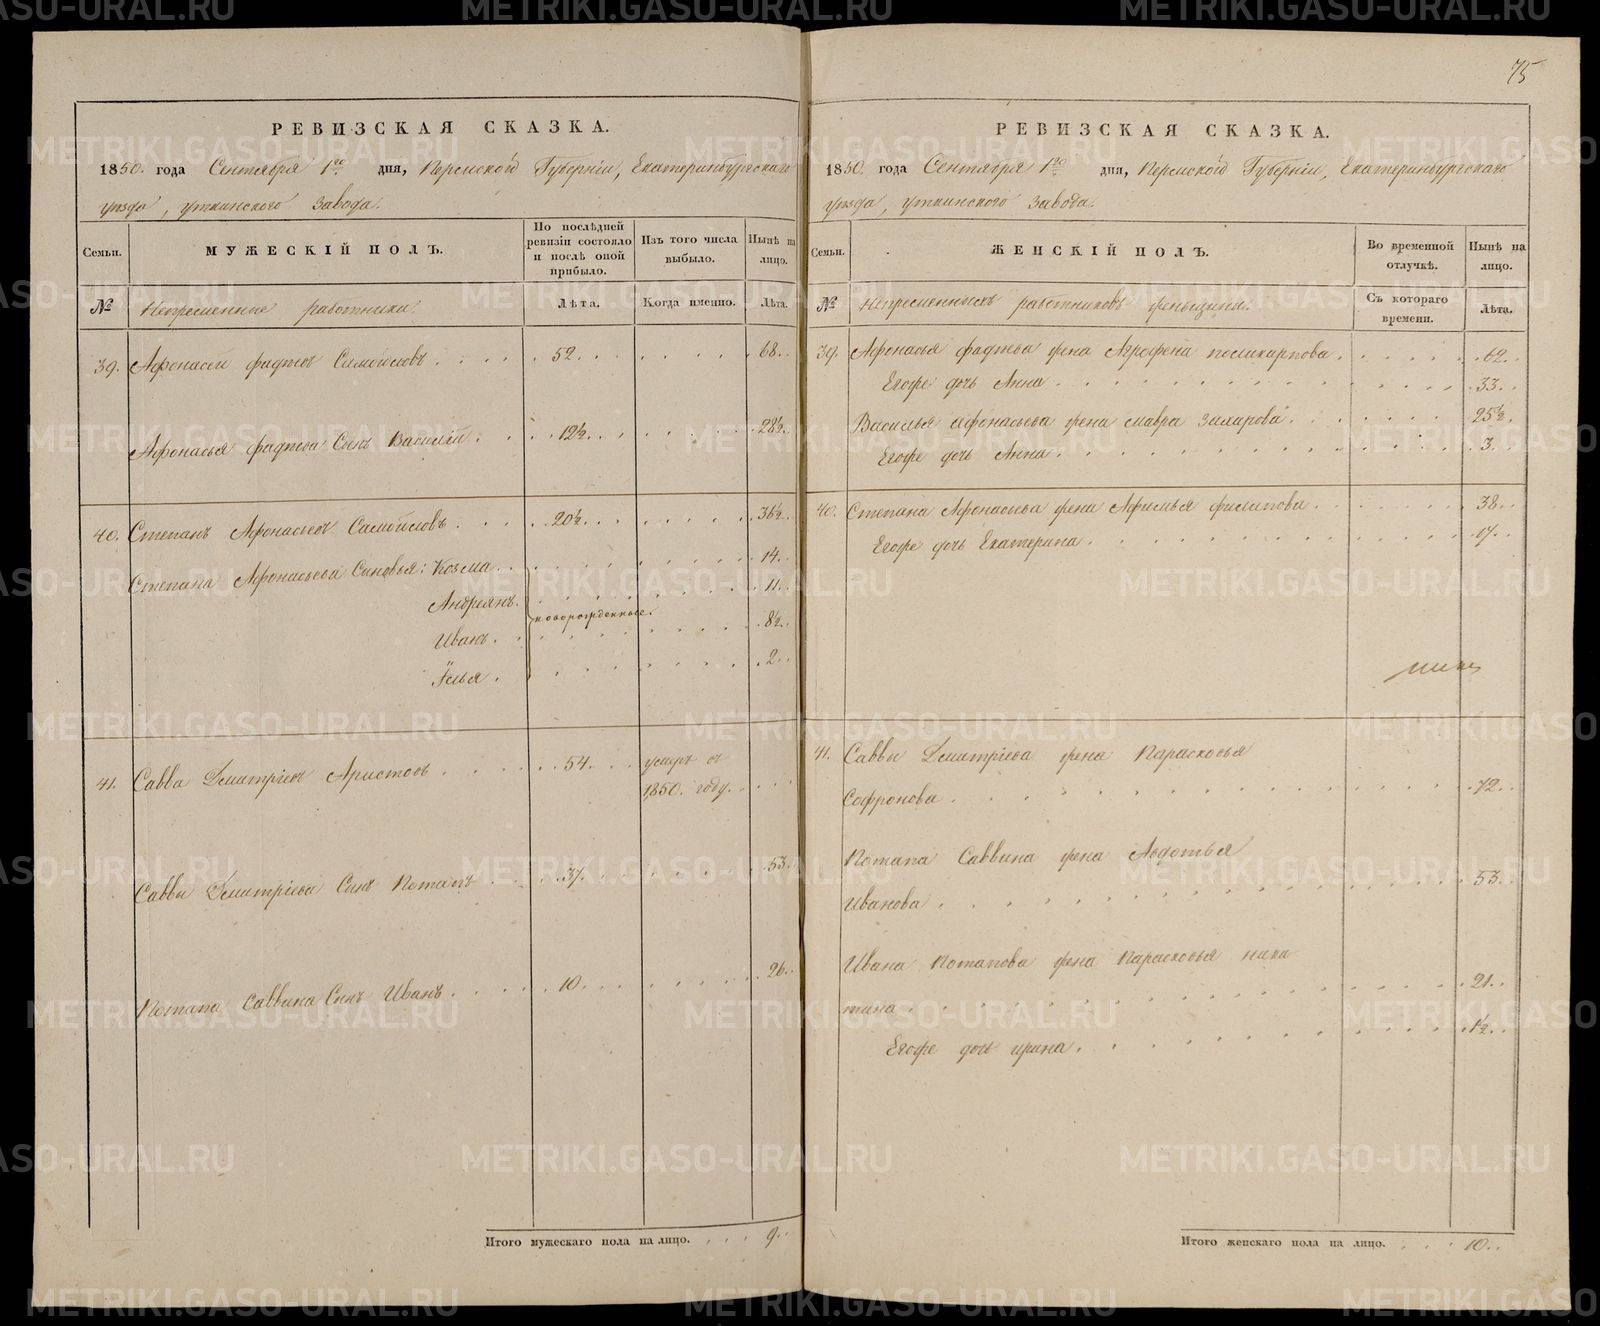 75
РЕВИЗСКАЯ СКАЗКА.
1850. года Сентября 1го дня, Пермской Губернiи, Екатеринбургскаго
уезда, уткинского Завода.
Семьи.
МУЖЕСКІЙ ПОЛЪ.
По послѣдней ревизіи состояло и послѣ оной прибыло.
Изъ того числа выбыло.
Нынѣ на лицо.
№
Непременные работники.
Лѣта.
Когда именно.
Лѣта.
39. Афонасеи фадѣевъ Самойловъ . . . 52. . . 68.
Афонасья фадѣева Сынъ Василiй . . . 12½. . . 28½.
40. Степанъ Афонасьевъ Самойловъ . . . 20½. . . 36½.
Степана Афонасьева Сыновья: Козма . . . 14.
Андреянъ. . . 11.
новорожденные.
Иванъ. . . 8½.
Илья. . . 2.
41. Савва Дмитрiевъ Аристовъ . . . 54. . . умеръ в
1850. году.
Саввы Дмитрiева Сынъ Потапъ . . . 37. . . 53.
Потапа Саввина Сынъ Иванъ . . . 10. . . 26.
Итого мужескаго пола на лицо. . . 9.
РЕВИЗСКАЯ СКАЗКА.
1850. года Сентября 1го дня, Пермской Губернiи, Екатеринбургскаго
уезда, уткинского Завода.
Семьи.
ЖЕНСКІЙ ПОЛЪ.
Во временной отлучкѣ.
Нынѣ на лицо.
№
Непременныхъ работниковъ женщины.
Съ котораго времени.
Лѣта.
39. Афонасья фадѣева жена Агрофена поликарпова . . . 62.
Егоже дочь Анна . . . 33.
Василья Афонасьева жена мавра захарова . . . 25½.
Егоже дочь Анна . . . 3.
40. Степана Афонасьева жена Афимья филипова . . . 38.
Егоже дочь Екатерина . . . 17.
41. Саввы Дмитрiева жена Парасковья
Софронова . . . 72.
Потапа Саввина жена Авдотья
Иванова . . . 53.
Ивана Потапова жена Парасковья ники
тина . . . 21.
Егоже дочь ирина. . . 1½.
Итого женскаго пола на лицо. . . 10.
METRIKI.GASO-URAL.RU